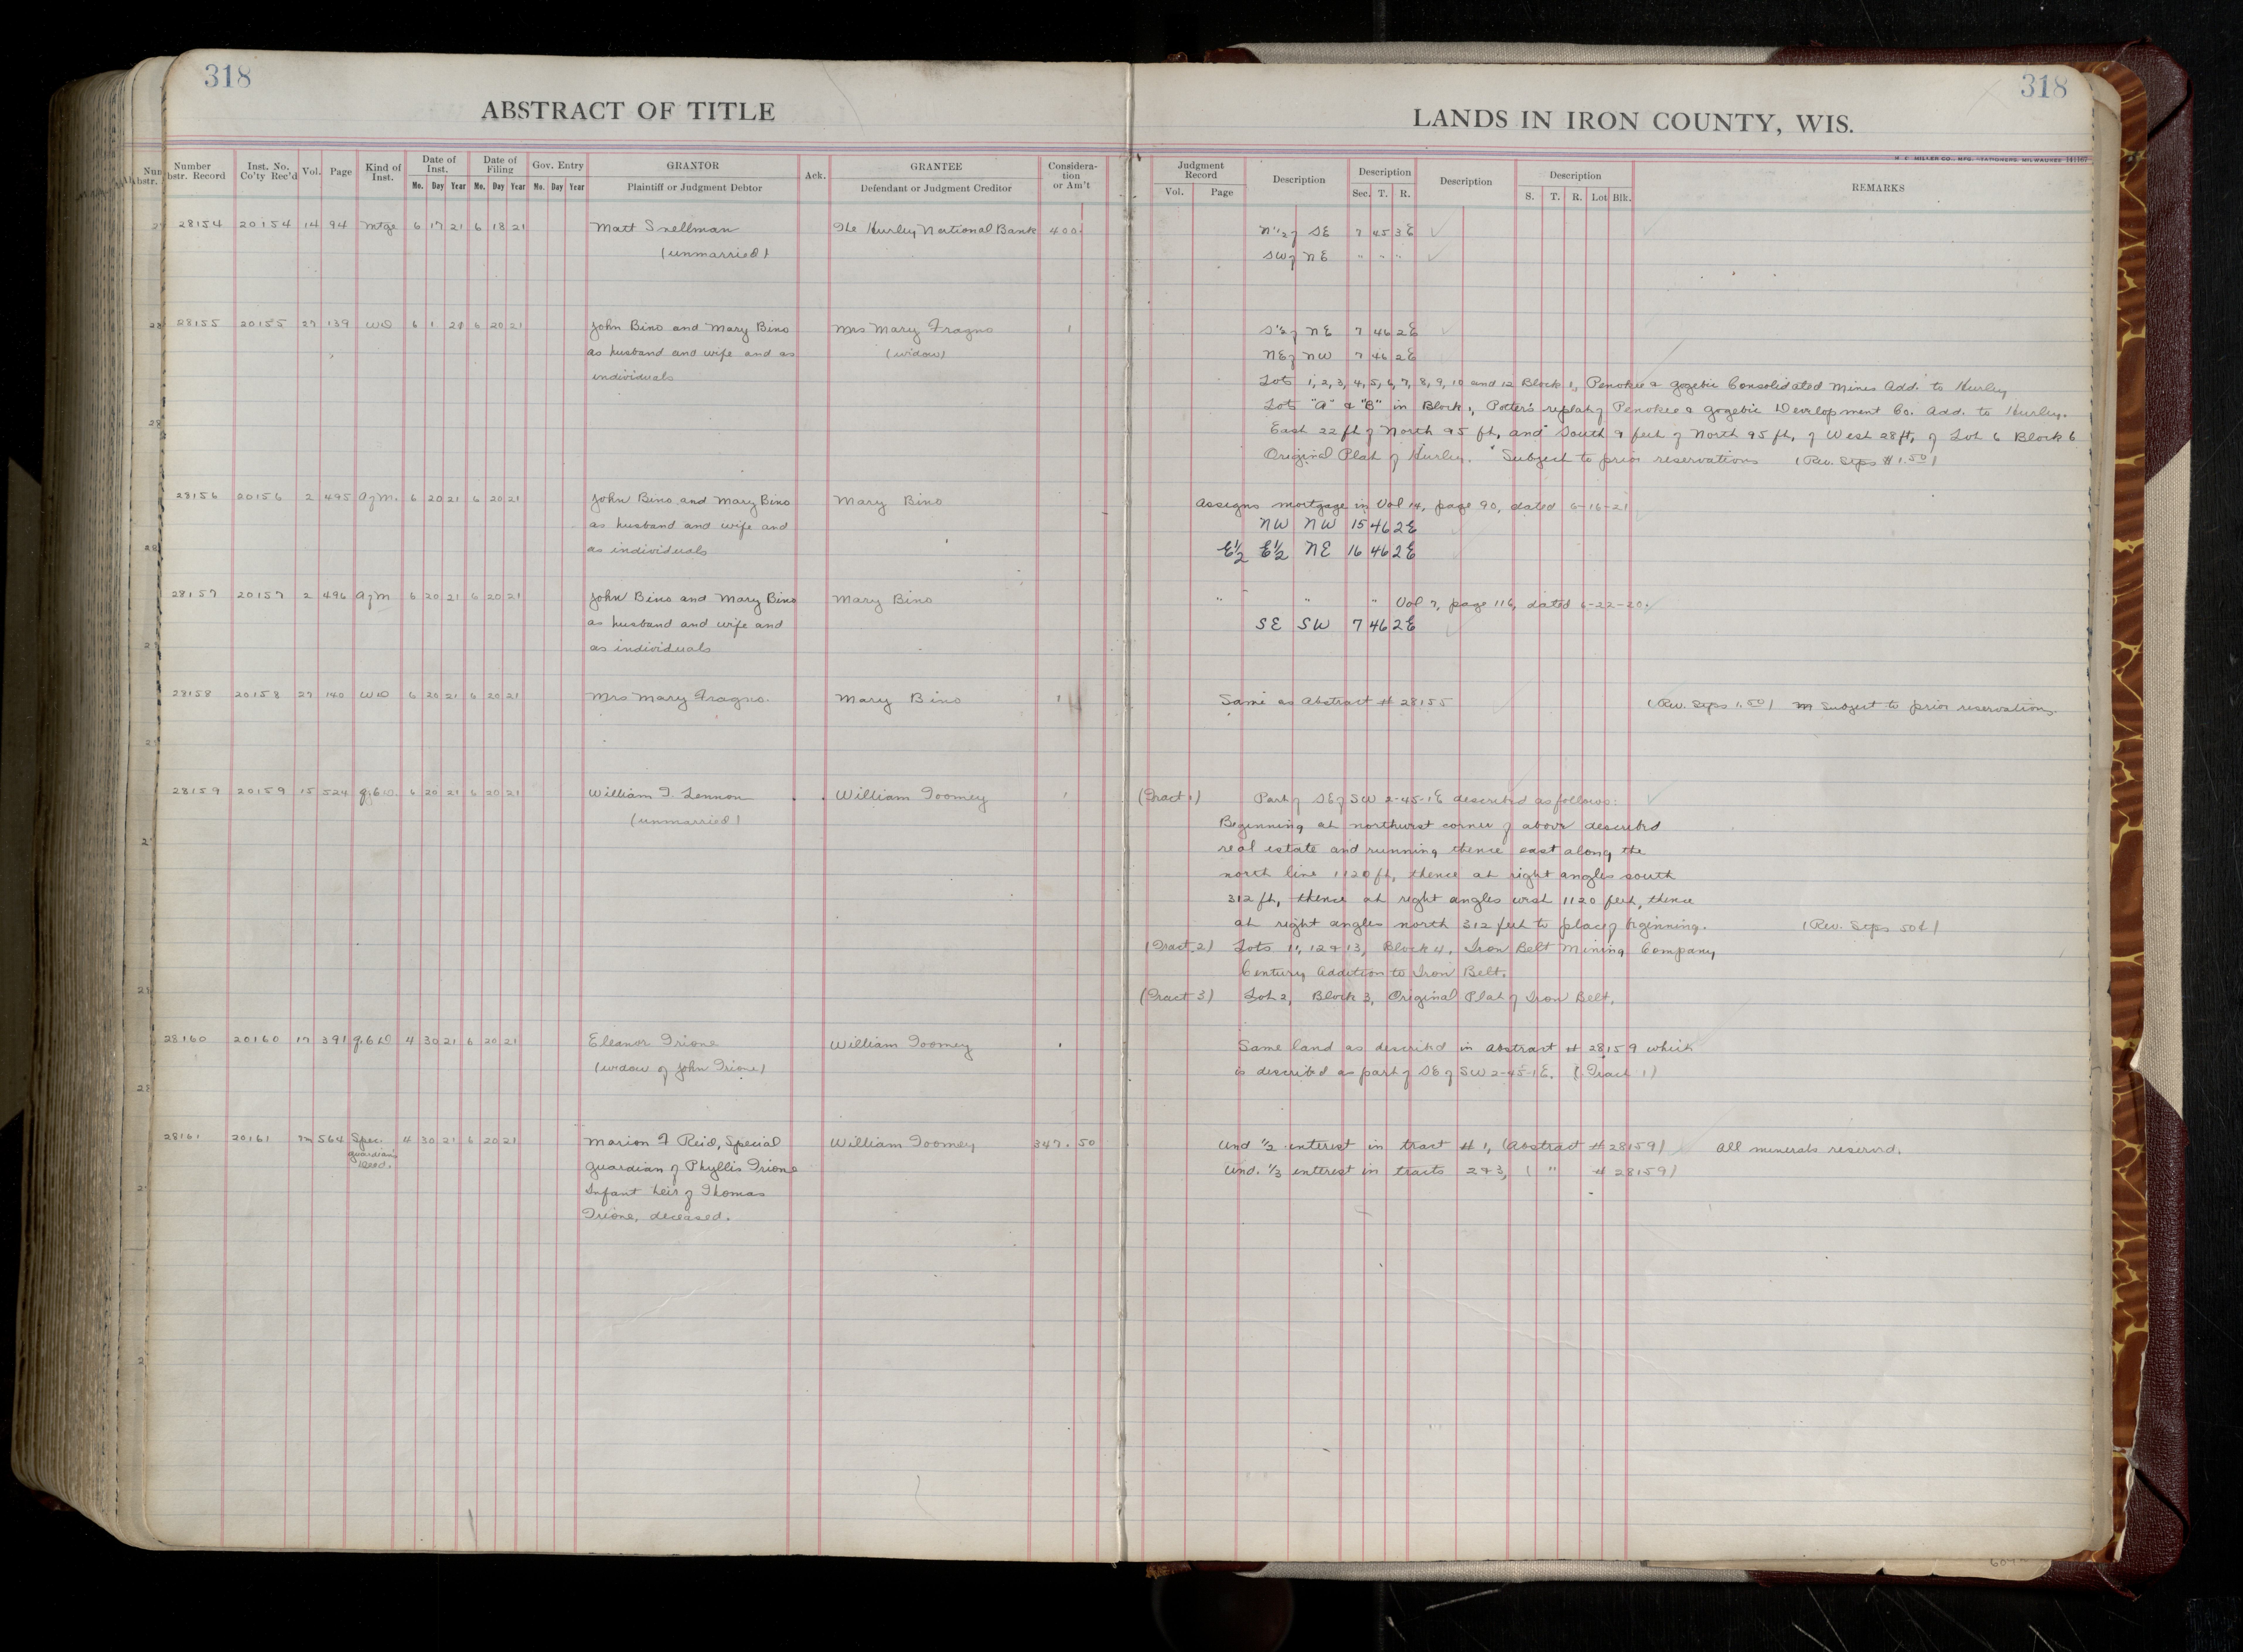 318
318
ABSTRACT OF TITLE
LANDS IN IRON COUNTY, WIS.
Number Abstr. Record | Inst. No. Co'ty Rec'd | Vol. | Page | Kind of Inst. | Date of Inst. Mo. Day Year | Date of Filing Mo. Day Year | Gov. Entry Mo. Day Year | GRANTOR Plaintiff or Judgment Debtor | Ack. | GRANTEE Defendant or Judgment Creditor | Considera-tion or Am't | Judgment Record Vol. Page | Description | Description Sec. T. R. | Description | Description S. T. R. Lot Blk. | REMARKS
28154 20154 14 94 Mtge 6 17 21 6 18 21 Matt Snellman The Hurley National Bank 400 N 1/2 of SE 7 45 3E
(unmarried) SW of NE " " "
28155 20155 27 139 WD 6 1 21 6 20 21 John Bino and Mary Bino Mrs Mary Fragno 1 SE of NE 7 46 2E
as husband and wife and as (widow) NE of NW 7 46 2E
individuals Lots 1, 2, 3, 4, 5, 6, 7, 8, 9, 10 and 12 Block 1, Penokee & Gogebic Consolidated Mines Add. to Hurley
Lots "A" & "B" in Block 1, Potter's replat of Penokee & Gogebic Development Co. Add. to Hurley.
East 22 ft of North 95 ft, and South 9 feet of North 95 ft, of West 28 ft, of Lot 6 Block 6
Original Plat of Hurley. Subject to prior reservations (Rev. Stps $1.50)
28156 20156 2 495 A of M. 6 20 21 6 20 21 John Bino and Mary Bino Mary Bino Assigns mortgage in Vol 14, page 90, dated 6-16-21
as husband and wife and NW NW 15 46 2E
as individuals E½ E½ NE 16 46 2E
28157 20157 2 496 A of M 6 20 21 6 20 21 John Bino and Mary Bino Mary Bino " " " Vol 7, page 116, dated 6-22-20.
as husband and wife and SE SW 7 46 2E
as individuals
28158 20158 27 140 WD 6 20 21 6 20 21 Mrs Mary Fragno. Mary Bino 1 Same as Abstract # 28155 (Rev. Stps 1.50) Subject to prior reservations.
28159 20159 15 524 Q.C.D. 6 20 21 6 20 21 William T. Lennon William Toomey 1 (Tract 1) Part of SE of SW 2-45-1E described as follows:
(unmarried) Beginning at northwest corner of above described
real estate and running thence east along the
north line 1120 ft, thence at right angles south
312 ft, thence at right angles west 1120 feet, thence
at right angles north 312 feet to place of beginning. (Rev. Stps 50¢)
(Tract 2) Lots 11, 12 & 13, Block 4, Iron Belt Mining Company
Century Addition to Iron Belt.
(Tract 3) Lot 2, Block 3, Original Plat of Iron Belt.
28160 20160 17 391 Q.C.D 4 30 21 6 20 21 Eleanor Trione William Toomey 1 Same land as described in Abstract # 28159 which
(widow of John Trione) is described as part of SE of SW 2-45-1E. (Tract 1)
28161 20161 564 Spec. guardian's Deed. 4 30 21 6 20 21 Marion F Reid, Special William Toomey 347. 50 Und ½ interest in tract # 1, (Abstract # 28159) All minerals reserved.
guardian of Phyllis Trione Und. ⅓ interest in tracts 2 & 3, ( " # 28159)
Infant heir of Thomas
Trione, deceased.